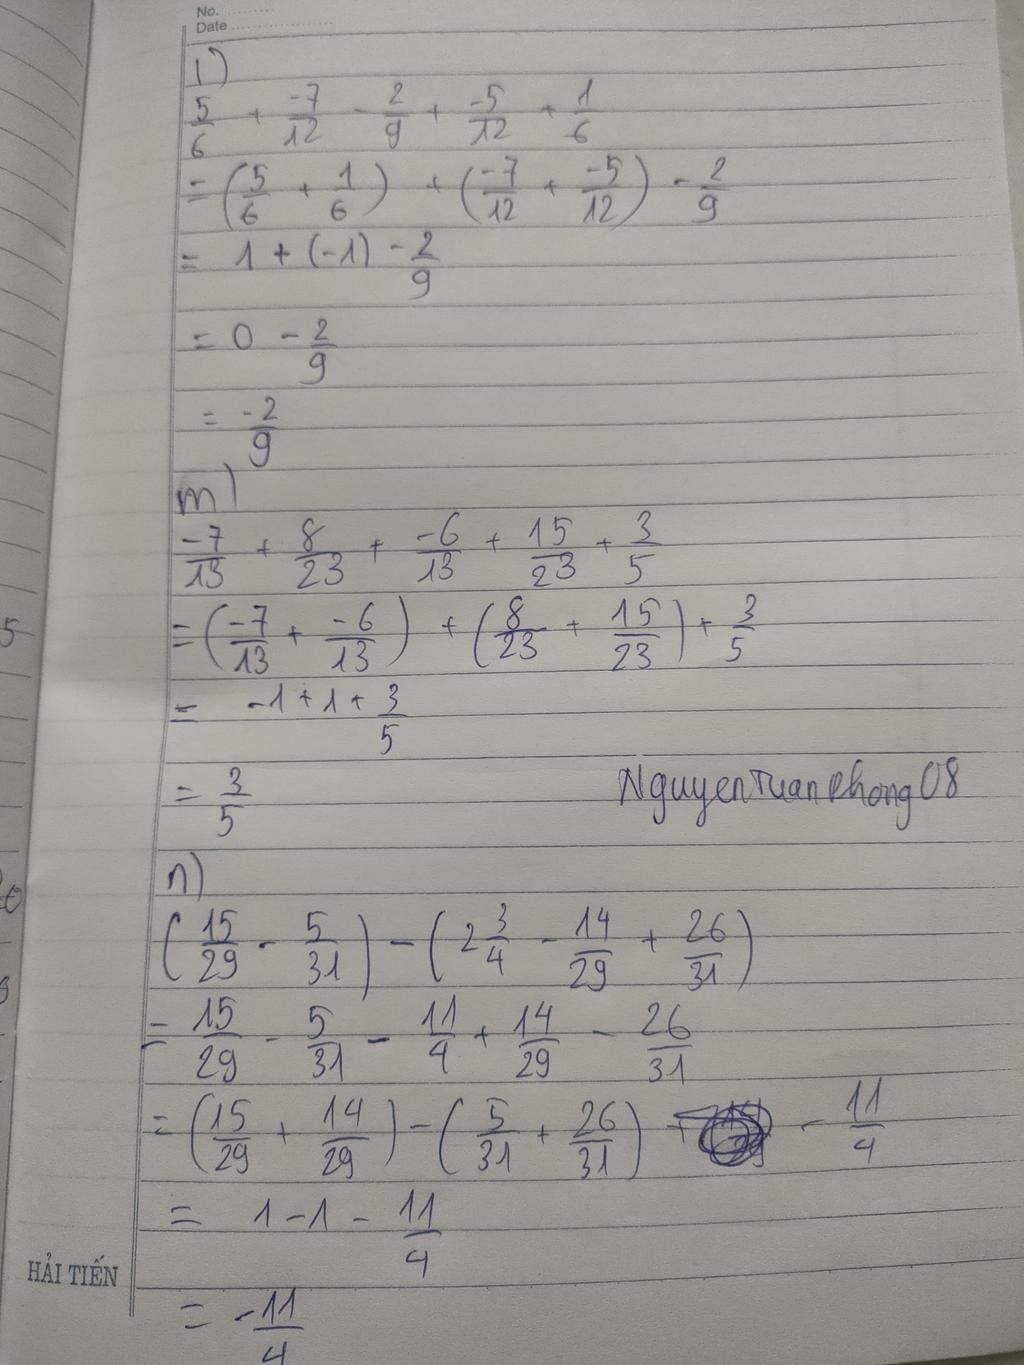 No. ..........
Date ....................
l)
5/6 + -7/12 - 2/9 + -5/12 + 1/6
= (5/6 + 1/6) + (-7/12 + -5/12) - 2/9
= 1 + (-1) - 2/9
= 0 - 2/9
= -2/9
m)
-7/13 + 8/23 + -6/13 + 15/23 + 3/5
= (-7/13 + -6/13) + (8/23 + 15/23) + 3/5
= -1 + 1 + 3/5
= 3/5
NguyenTuanPhong08
n)
(15/29 - 5/31) - (2 3/4 - 14/29 + 26/31)
= 15/29 - 5/31 - 11/4 + 14/29 - 26/31
= (15/29 + 14/29) - (5/31 + 26/31) - 11/4
= 1 - 1 - 11/4
= -11/4
HẢI TIẾN